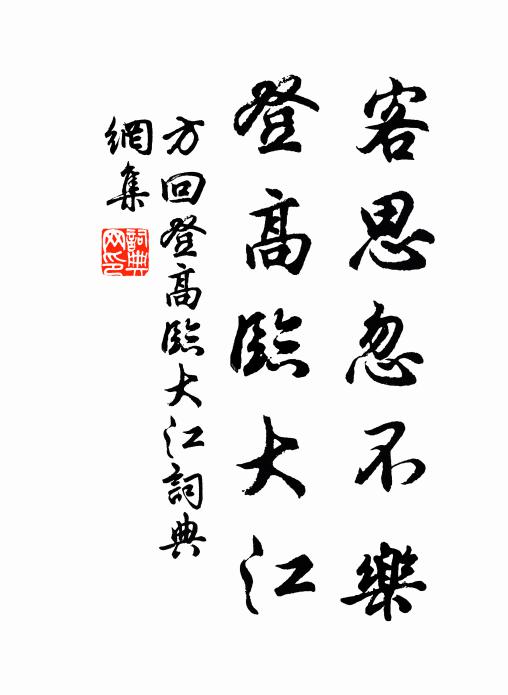 客思忽不樂
登高臨大江
方回登高臨大江詞典
網集
詞典網印